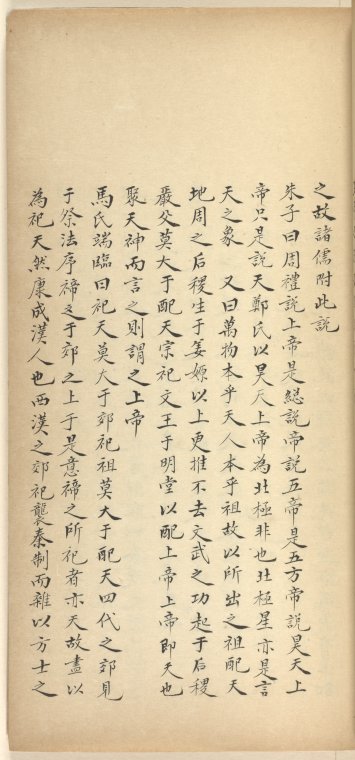 之故諸儒附此説
朱子曰周禮説上帝是緫説帝説五帝是五方帝説昊天上
帝只是説天鄭氏以昊天上帝為北極非也北極星亦是言
天之象　又曰萬物本乎天人本乎祖故以所出之祖配天
地周之后稷生于姜嫄以上更推不去文武之功起于后稷
嚴父莫大于配天宗祀文王于明堂以配上帝上帝即天也
聚天神而言之則謂之上帝
馬氏端臨曰祀天莫大于郊祀祖莫大于配天四代之郊見
于祭法序禘之于郊之上于是意禘之所祀者亦天故盡以
為祀天然康成漢人也西漢之郊祀襲秦制而雜以方士之